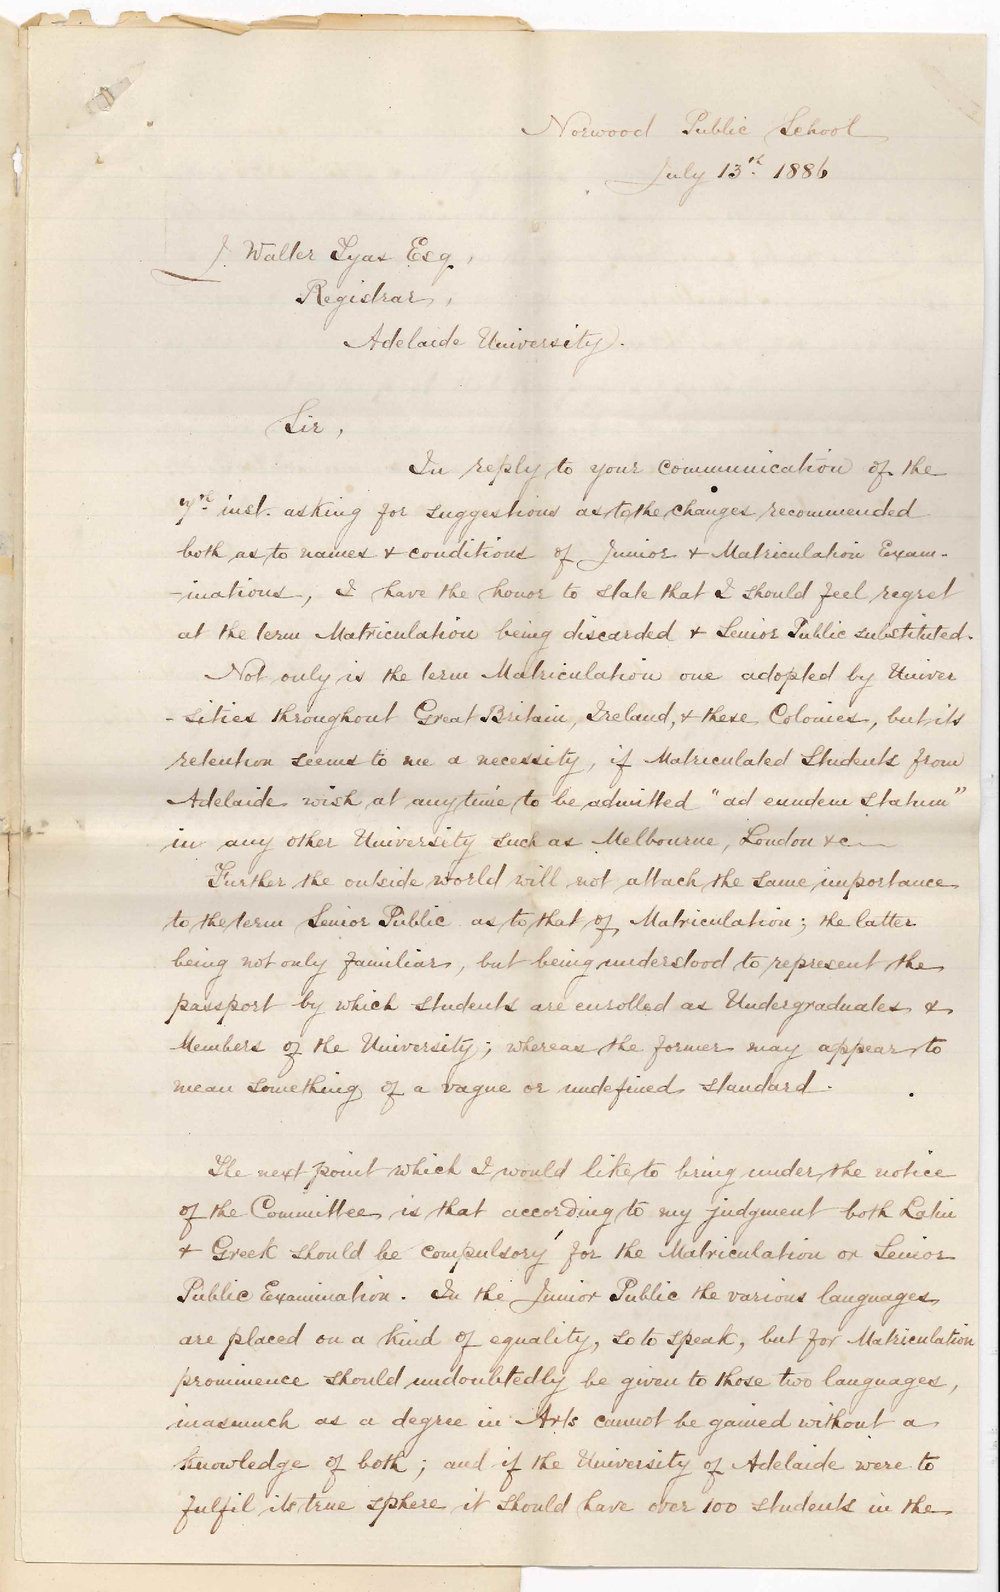 Norwood Public School
July 13th. 1886
J. Walter Tyas Esq.,
Registrar,
Adelaide University.
Sir,
In reply to your communication of the
7th. inst. asking for suggestions as to the changes recommended
both as to names & conditions of Junior & Matriculation Exam-
-inations, I have the honor to state that I should feel regret
at the term Matriculation being discarded & Senior Public substituted.
Not only is the term Matriculation one adopted by Univer
-sities throughout Great Britain, Ireland, & these Colonies, but its
retention seems to me a necessity, if Matriculated Students from
Adelaide wish at any time to be admitted "ad eundem statum"
in any other University such as Melbourne, London &c—
Further the outside world will not attach the same importance
to the term Senior Public as to that of Matriculation; the latter
being not only familiar, but being understood to represent the
passport by which students are enrolled as Undergraduates &
Members of the University; whereas the former may appear to
mean something of a vague or undefined standard.
The next point which I would like to bring under the notice
of the Committee is that according to my judgment both Latin
& Greek should be compulsory for the Matriculation or Senior
Public Examination. In the Junior Public the various languages
are placed on a kind of equality, so to speak, but for Matriculation
prominence should undoubtedly be given to those two languages,
inasmuch as a degree in Arts cannot be gained without a
knowledge of both; and if the University of Adelaide were to
fulfil its true sphere it should have over 100 students in the